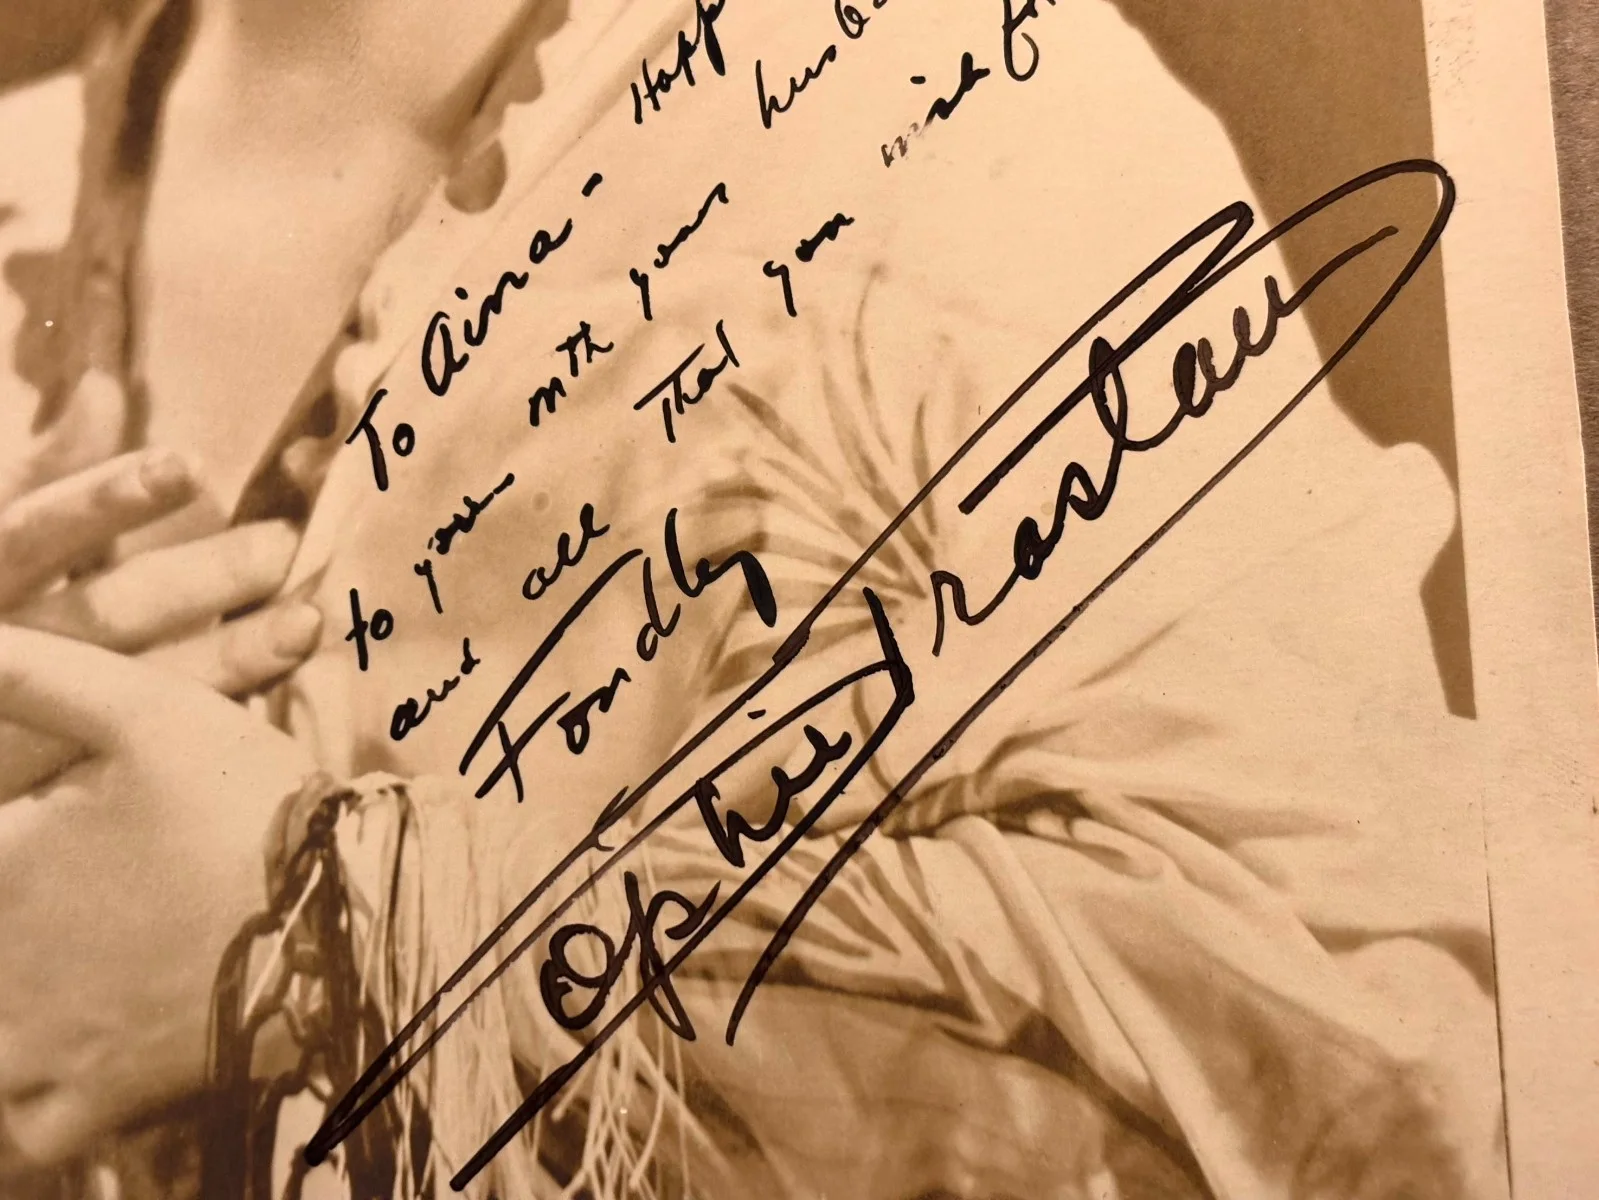 To Aina - Happ
to you - with your husba
and all That you wish for
Fondly
Sophie Braslau